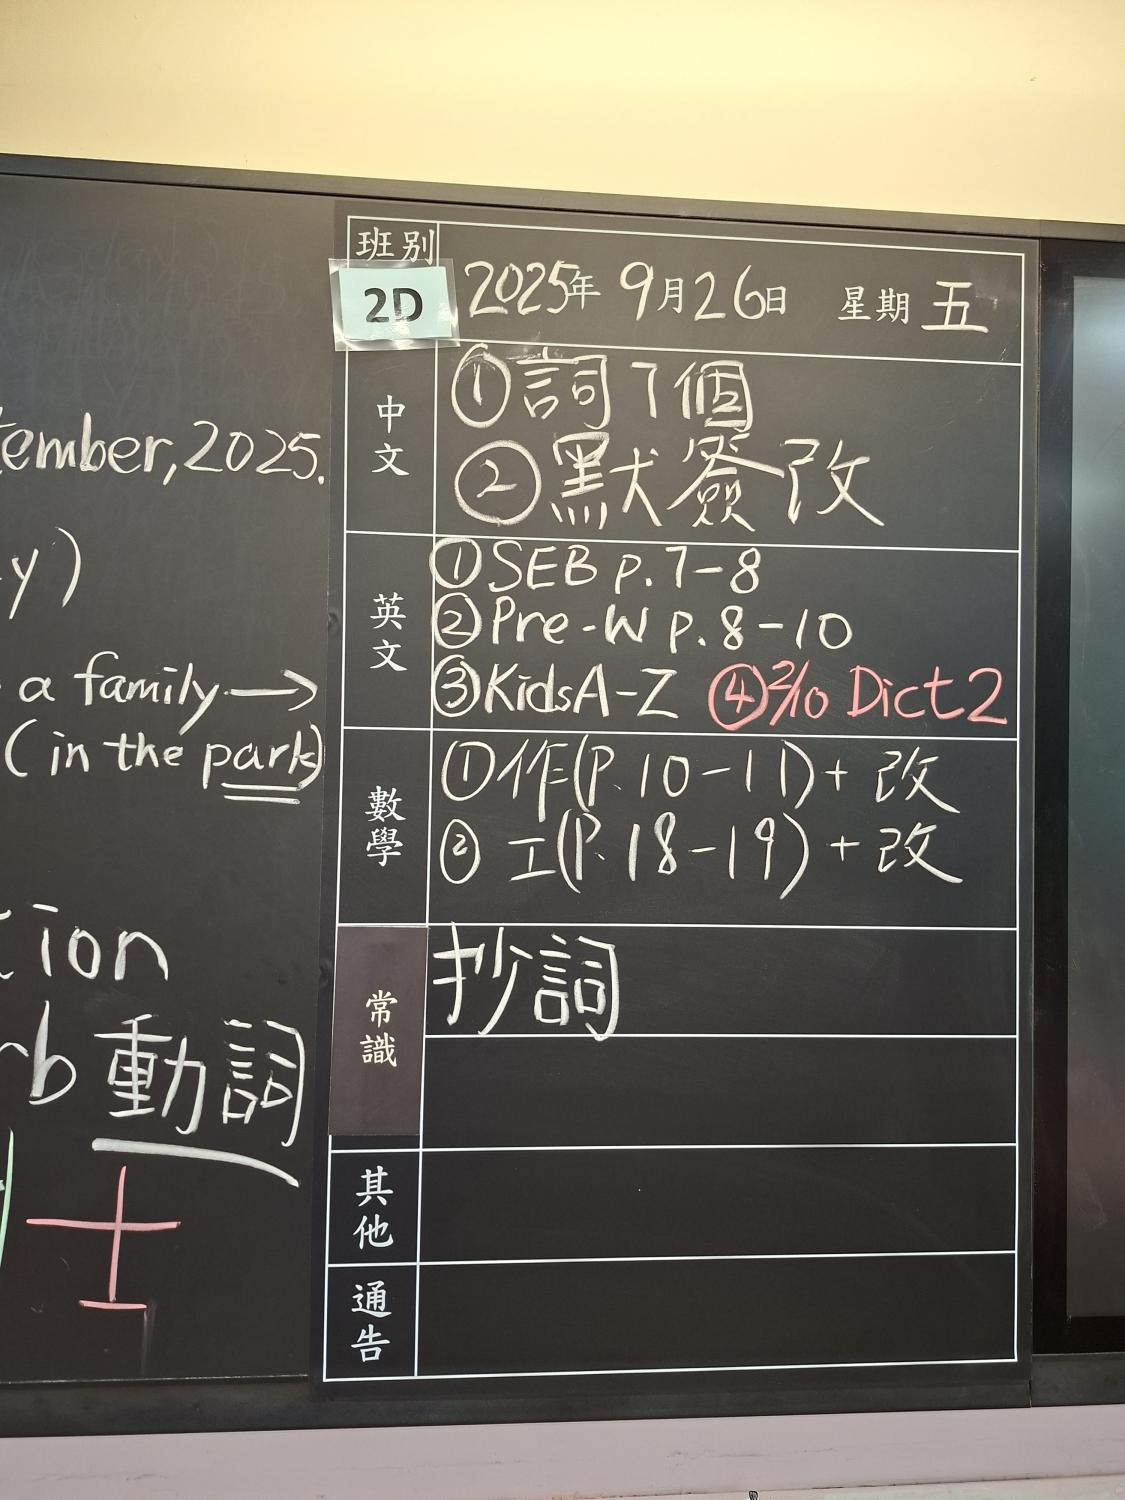 tember, 2025.
y)
a family →
(in the park)
tion
rb 動詞
士
班别
2D
2025年 9月26日 星期五
中文
①詞7個
②默簽改
英文
①SEB p.7-8
②Pre-W p.8-10
③KidsA-Z ④2/10 Dict2
數學
①作(P.10-11)+改
②工(P.18-19)+改
常識
抄詞
其他
通告